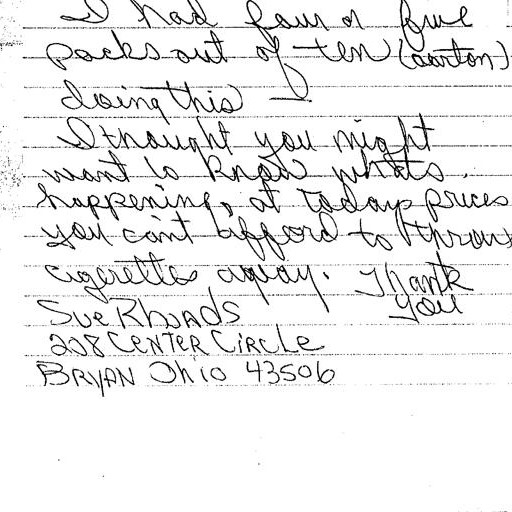 I had four or five
packs out of ten (carton)
doing this —
I thought you might
want to know whats
happening, at todays prices
you can't afford to throw
cigerettes away. Thank
you
Sue Rhoads
208 CENTER CIRCLE
BRYAN Ohio 43506